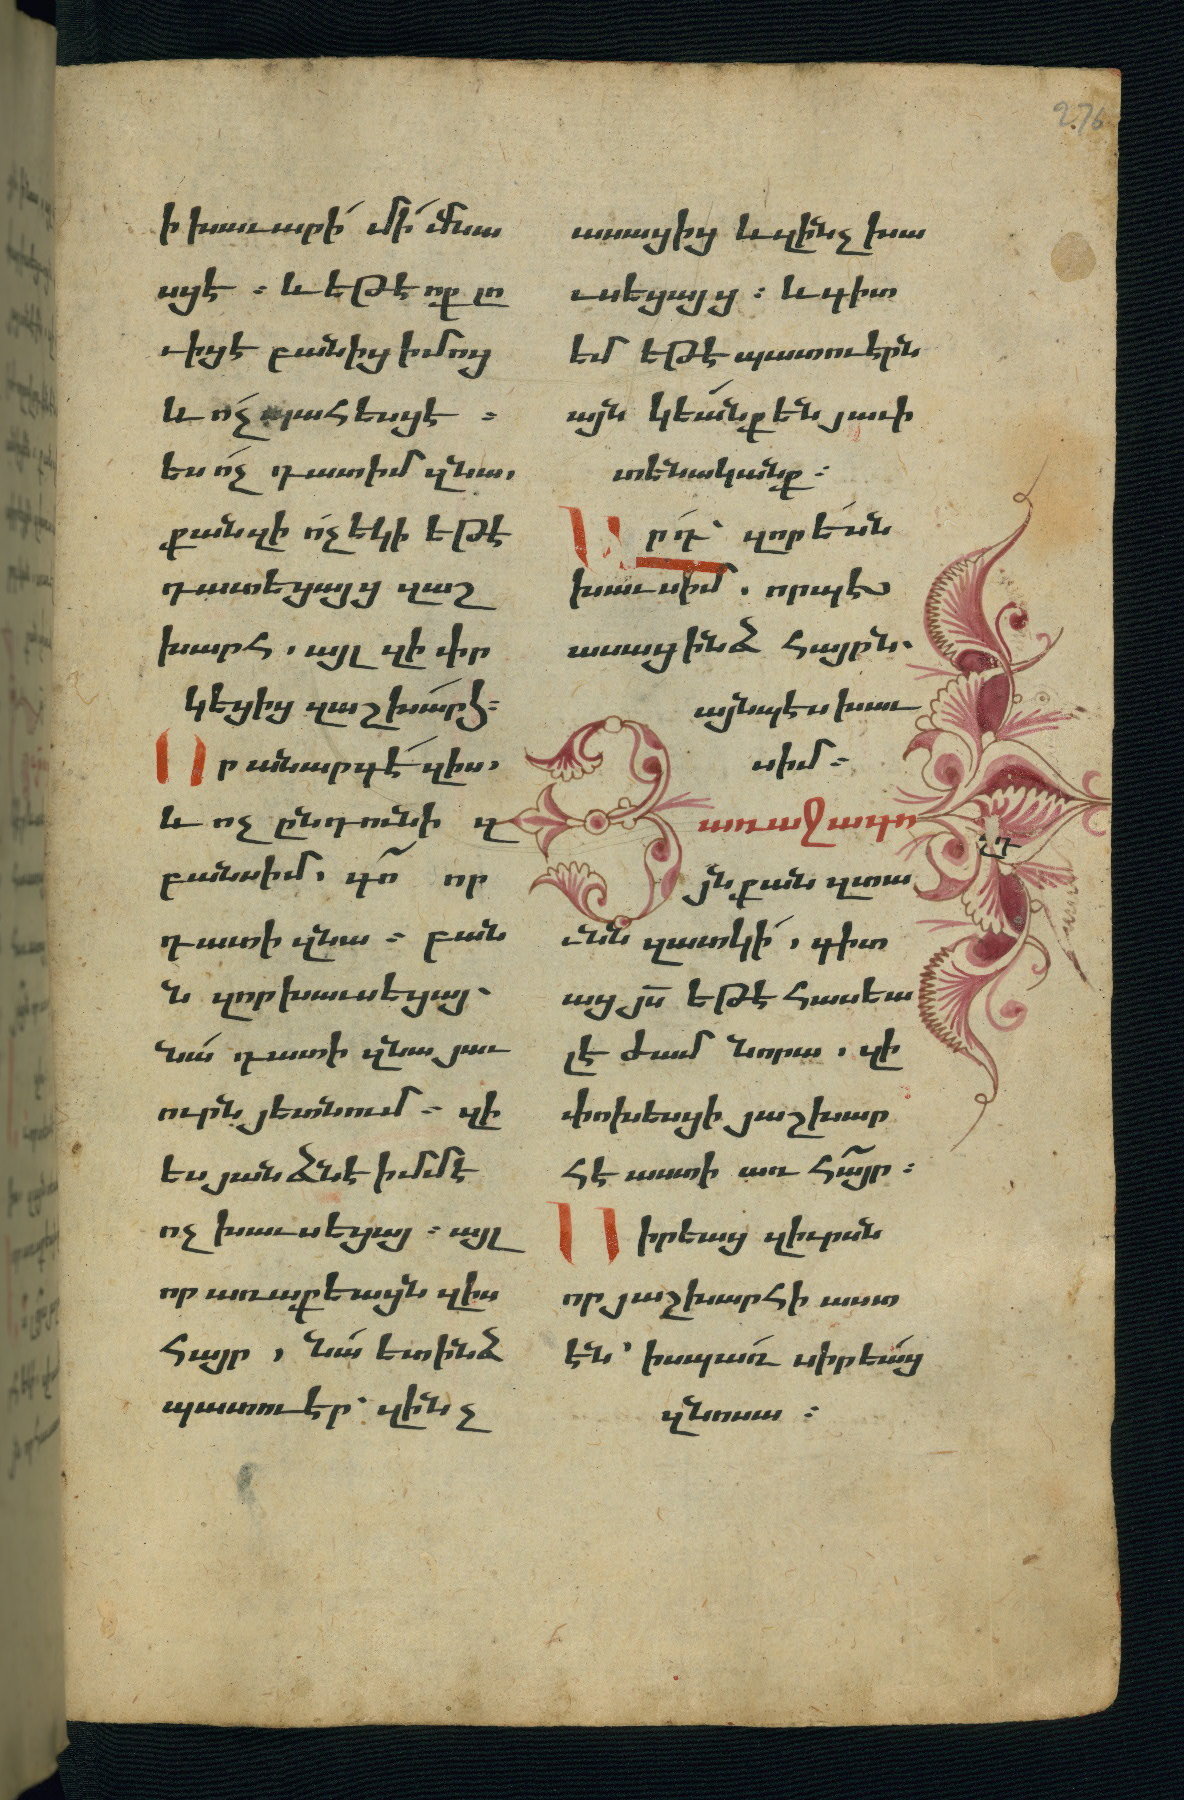 276
ի խաւարի՛ մի՛ մնա
սցէ ։ և եթէ ոք լո
ւիցէ բանից իմոց
և ո՛չ պահեսցէ ։
ես ո՛չ դատիմ զնա,
քանզի ո՛չ եկի եթէ
դատեցայց զաշ
խարհ, այլ զի փր
կեցից զաշխա՛րհ։
Որ անարգէ՛ զիս,
և ոչ ընդունի զ
բանսիմ, գո՞ որ
դատի զնա ։ բան
ն զոր խաւսեցայ՝
նա՛ դատի զնա յաւ
ուրն յետնում ։ զի
ես յանձնէ իմմէ
ոչ խաւսեցայ ։ այլ
որ առաքեացն զիս
հայր, նա՛ ետ ինձ
պատուէր՝ զինչ
ասացից և զինչ խա
ւսեցայց ։ և գիտ
եմ եթէ պատուէրն
այն կեա՛նք են յաւի
տենականք ։
Արդ՝ զոր ե՛սն
խաւսիմ, որպէս
ասաց ինձ հայրն՝
այնպէս խաւ
սիմ ։
Յառաջ գո
ճդ
յն քան զտա
ւնն զատկի՛, գիտ
աց յս եթէ հասեա
լ է ժամ նորա, զի
փոխեսցի յաշխար
հէ աստի առ հայր ։
Սիրեաց զիւրսն
որ յաշխարհի աստ
էն՝ իսպա՛ռ սիրեա՛ց
զնոսա ։